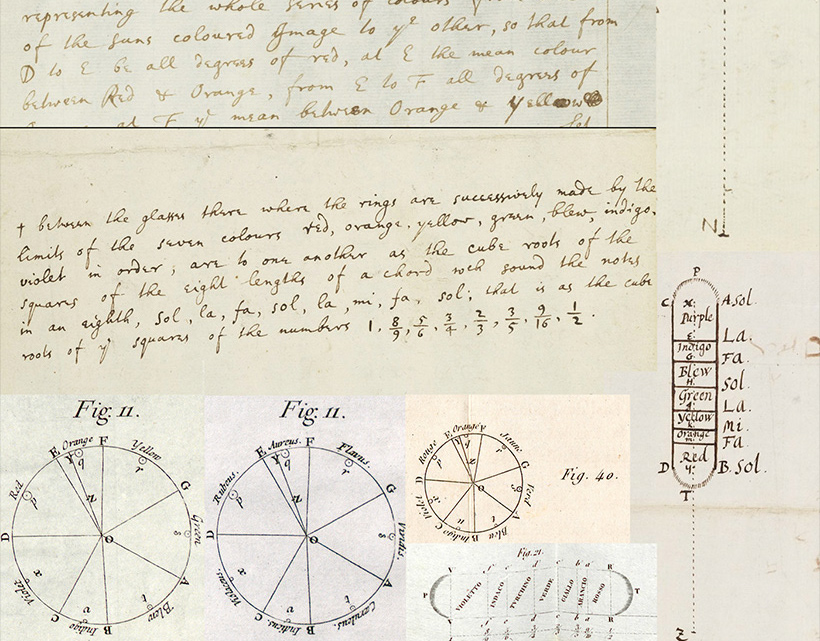 representing the whole series of colours
of the suns coloured Image to yᵉ other, so that from
D to E be all degrees of red, at E the mean colour
between Red & Orange, from E to F all degrees of
at F yᵉ mean between Orange & Yellow
+ between the glasses there where the rings are successively made by the
limits of the seven colours red, orange, yellow, green, blew, indigo,
violet in order, are to one another as the cube roots of the
squares of the eight lengths of a chord wch sound the notes
in an eighth, sol, la, fa, sol, la, mi, fa, sol; that is as the cube
roots of yᵉ squares of the numbers 1, 8/9, 5/6, 3/4, 2/3, 3/5, 9/16, 1/2.
N
P
C
x
A sol
Purple
E
La.
Indigo
G
Fa.
Blew
H
Sol
Green
La.
Yellow
Mi.
Orange
Fa
D
Red
Y
B. Sol.
T
Z
Fig. 11.
E Orange F
Yellow
Y q
r
Red
p
G
z
D
O
s
Green
x
A
Violet
t
Blew
C
v
Indigo
B
Fig. 11.
E Aureus. F
Flavus.
Y q
r
Rubeus.
p
G
z
D
O
s
Viridis.
x
A
Violaceus.
t
Cæruleus.
C
v
Indicus.
B
Fig. 40.
E Orangé F
Jaune
Rouge
G
D
O
Verd
Violet
A
Bleu
C
Indigo
B
Fig. 21.
P
VIOLETTO
INDACO
TVRCHINO
VERDE
GIALLO
ARANCIO
ROSSO
T